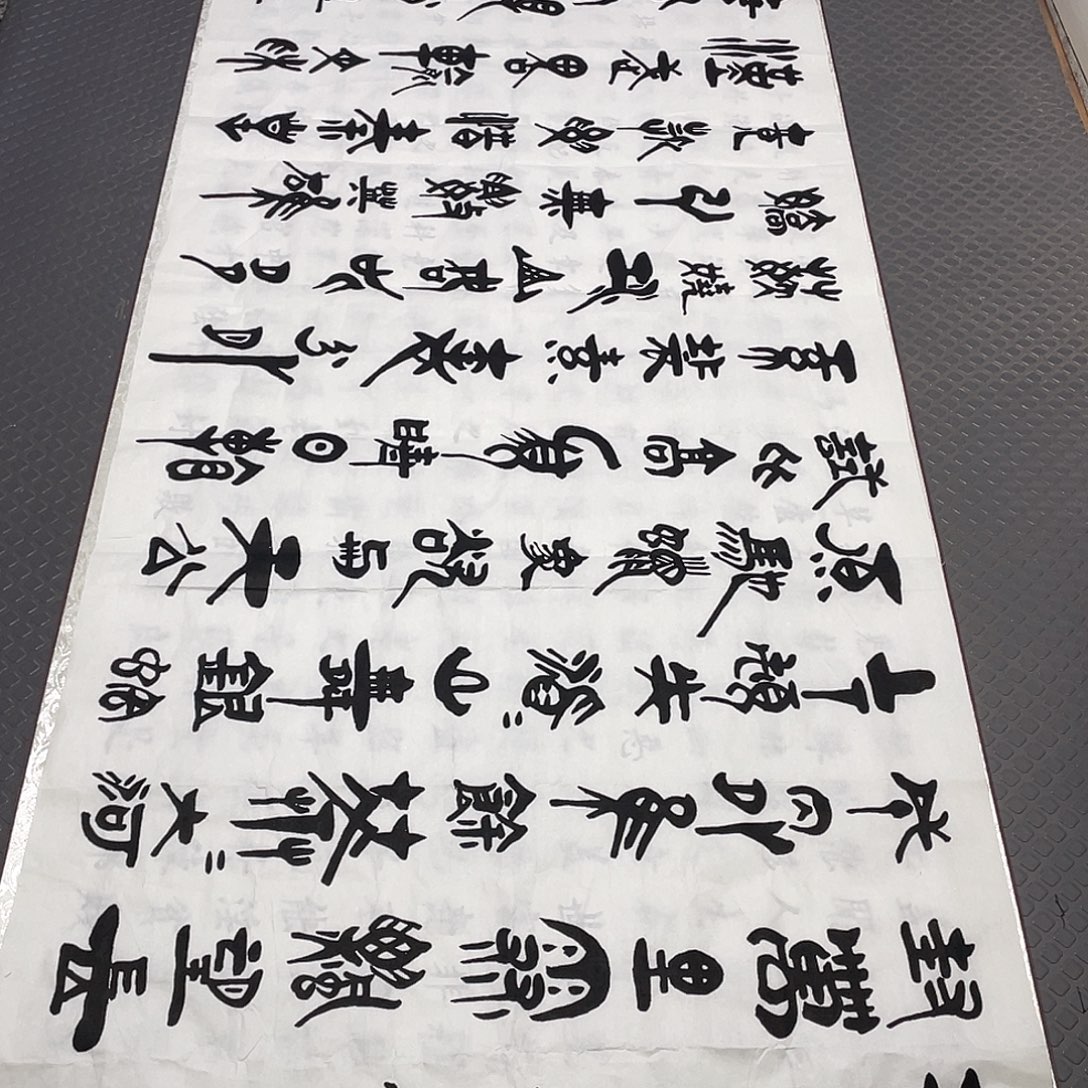 封萬里雪飄望長
城內外惟餘莽〻大河
上下頓失滔〻山舞銀蛇
原馳蠟象欲與天公
試比高須晴日看
紅裝素裹分外
妖嬈江山如此多
嬌引無數英雄
競折腰惜秦皇
漢武略輸文采